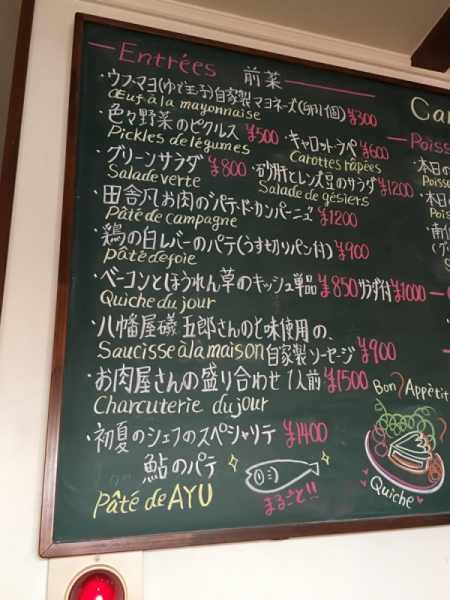 Entrées 前菜
・ウフ・マヨ(ゆで玉子)自家製マヨネーズ(卵1個)¥300
Œuf à la mayonnaise
・色々野菜のピクルス ¥500
Pickles de légumes
・キャロット・ラペ ¥600
Carottes râpées
・グリーンサラダ ¥800
Salade verte
・砂肝とレンズ豆のサラダ ¥1200
Salade de gésiers
・田舎風お肉のパテ・ド・カンパーニュ ¥1200
Pâté de campagne
・鶏の白レバーのパテ(うす切りパン付) ¥900
Pâté de foie
・ベーコンとほうれん草のキッシュ 単品¥850 サラダ付¥1000
Quiche du jour
・八幡屋礒五郎さんの七味使用の、
Saucisse à la maison 自家製ソーセージ ¥900
・お肉屋さんの盛り合わせ 1人前 ¥1500
Charcuterie du jour
・初夏のシェフのスペシャリテ ¥1400
鮎のパテ
Pâté de AYU
まるごと!!
Bon Appètit
Quiche
Car
Poiss
本日の
Poisso
本日の
Pois
南仏
(グ
S